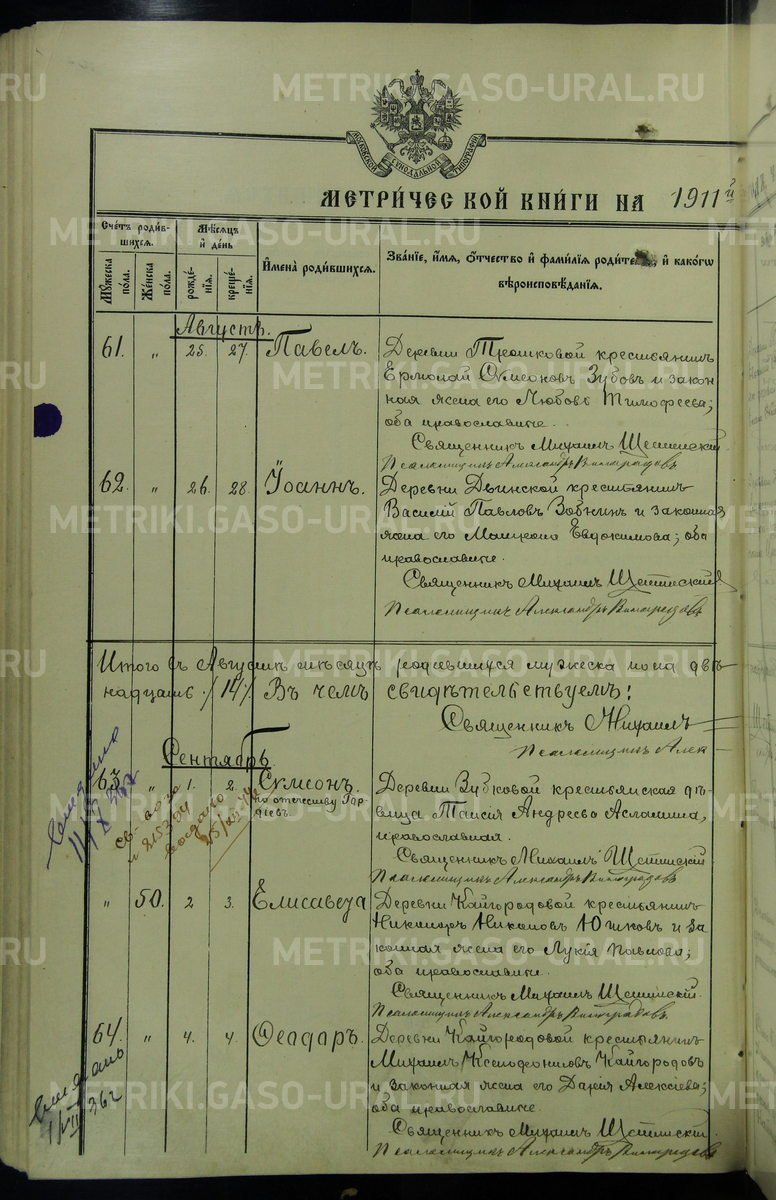 METRIKI.GASO-URAL.RU
МОСКОВСКОЙ СѴНОДАЛЬНОЙ ТИПОГРАФІИ
МЕТРИЧЕСКОЙ КНИГИ НА 1911й
Счетъ родившихся.
Мужеска пола.
Женска пола.
Мѣсяцъ и день
рожденія.
крещенія.
Имена родившихся.
Званіе, имя, отчество и фамилія родителей, и какогѡ вѣроисповѣданія.
Августъ.
61. " 25. 27. Павелъ.
Деревни Трошковой крестьянинъ
Ермолай Сѵмеоновъ Зубовъ и закон
ная жена его Любовь Тимофеева;
оба православные.
Священникъ Михаилъ
Псаломщикъ Александръ Виноградовъ
62. " 26. 28. Іоаннъ.
Деревни Двинской крестьянинъ
Василій Павловъ Зобнинъ и законная
жена его Евдокимова; оба
православные.
Священникъ Михаилъ
Псаломщикъ Александръ Виноградовъ
Итого въ Августѣ мѣсяцѣ родившихся мужеска пола двѣ
надцать /14/. Въ чемъ свидѣтельствуемъ:
Священникъ Михаилъ
Псаломщикъ Алек-
Сентябрь.
63. " 1. 2. Сѵмеонъ.
по отечеству Гор
дѣевъ.
Деревни Зубковой крестьянская дѣ
вица Таисія Андреева Асламина,
православная.
Священникъ Михаилъ
Псаломщикъ Александръ Виноградовъ
св-во за
выдано
" 50. 2 3. Елисавета
Деревни Кайгородовой крестьянинъ
Никаноръ Никоновъ Юшковъ и за
конная жена его Лукія Павлова;
оба православные.
Священникъ Михаилъ
Псаломщикъ Александръ Виноградовъ
64. " 4. 4. Ѳеодоръ.
Деревни Кайгородовой крестьянинъ
Михаилъ Ксенофонтовъ Кайгородовъ
и законная жена его Дарія Алексіева;
оба православные.
Священникъ Михаилъ
Псаломщикъ Александръ Виноградовъ